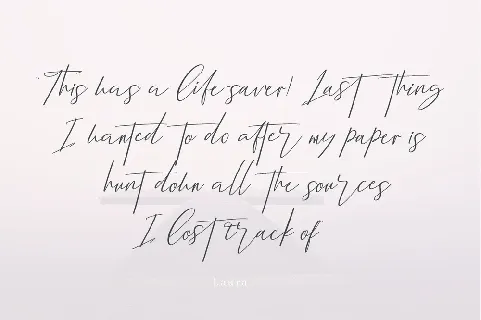 This was a life saver! Last thing
I wanted to do after my paper is
hunt down all the sources
I lost track of